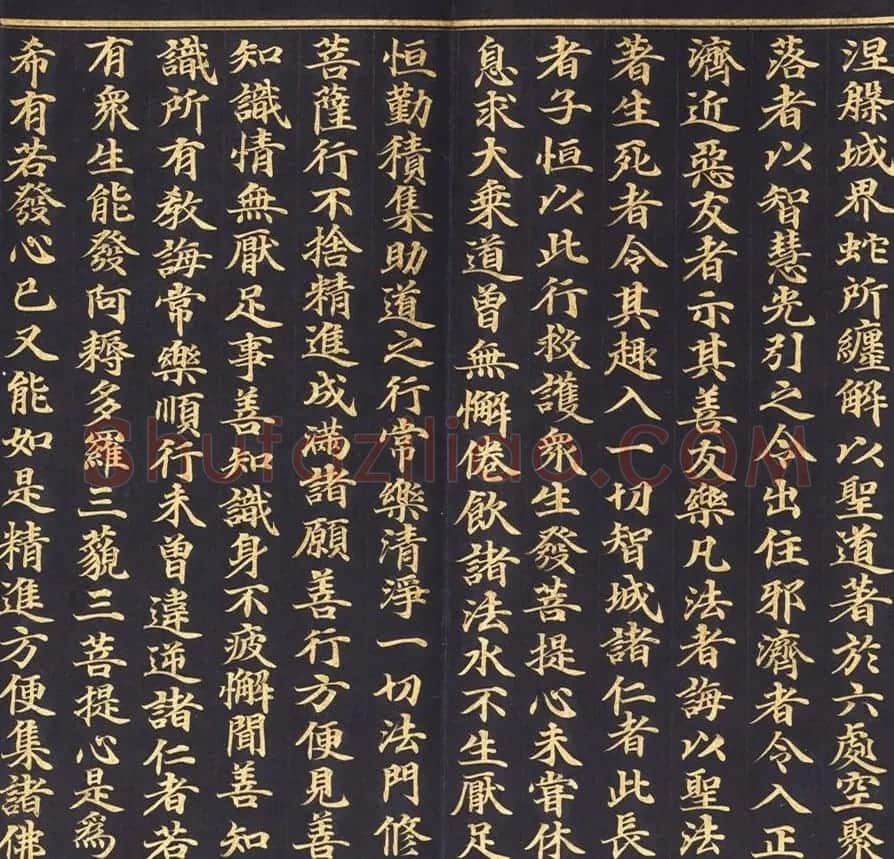 涅槃城界蛇所纏解以聖道著於六處空聚
落者以智慧光引之令出住邪濟者令入正
濟近惡友者示其善友樂凡法者誨以聖法
著生死者令其趣入一切智城諸仁者此長
者子恒以此行救護衆生發菩提心未甞休
息求大乗道曽無懈倦飲諸法水不生厭足
恒勤積集助道之行常樂清淨一切法門修
菩薩行不捨精進成滿諸願善行方便見善
知識情無厭足事善知識身不疲懈聞善知
識所有教誨常樂順行未曽違逆諸仁者若
有衆生能發阿耨多羅三藐三菩提心是爲
希有若發心已又能如是精進方便集諸佛
Shufaziliao.COM